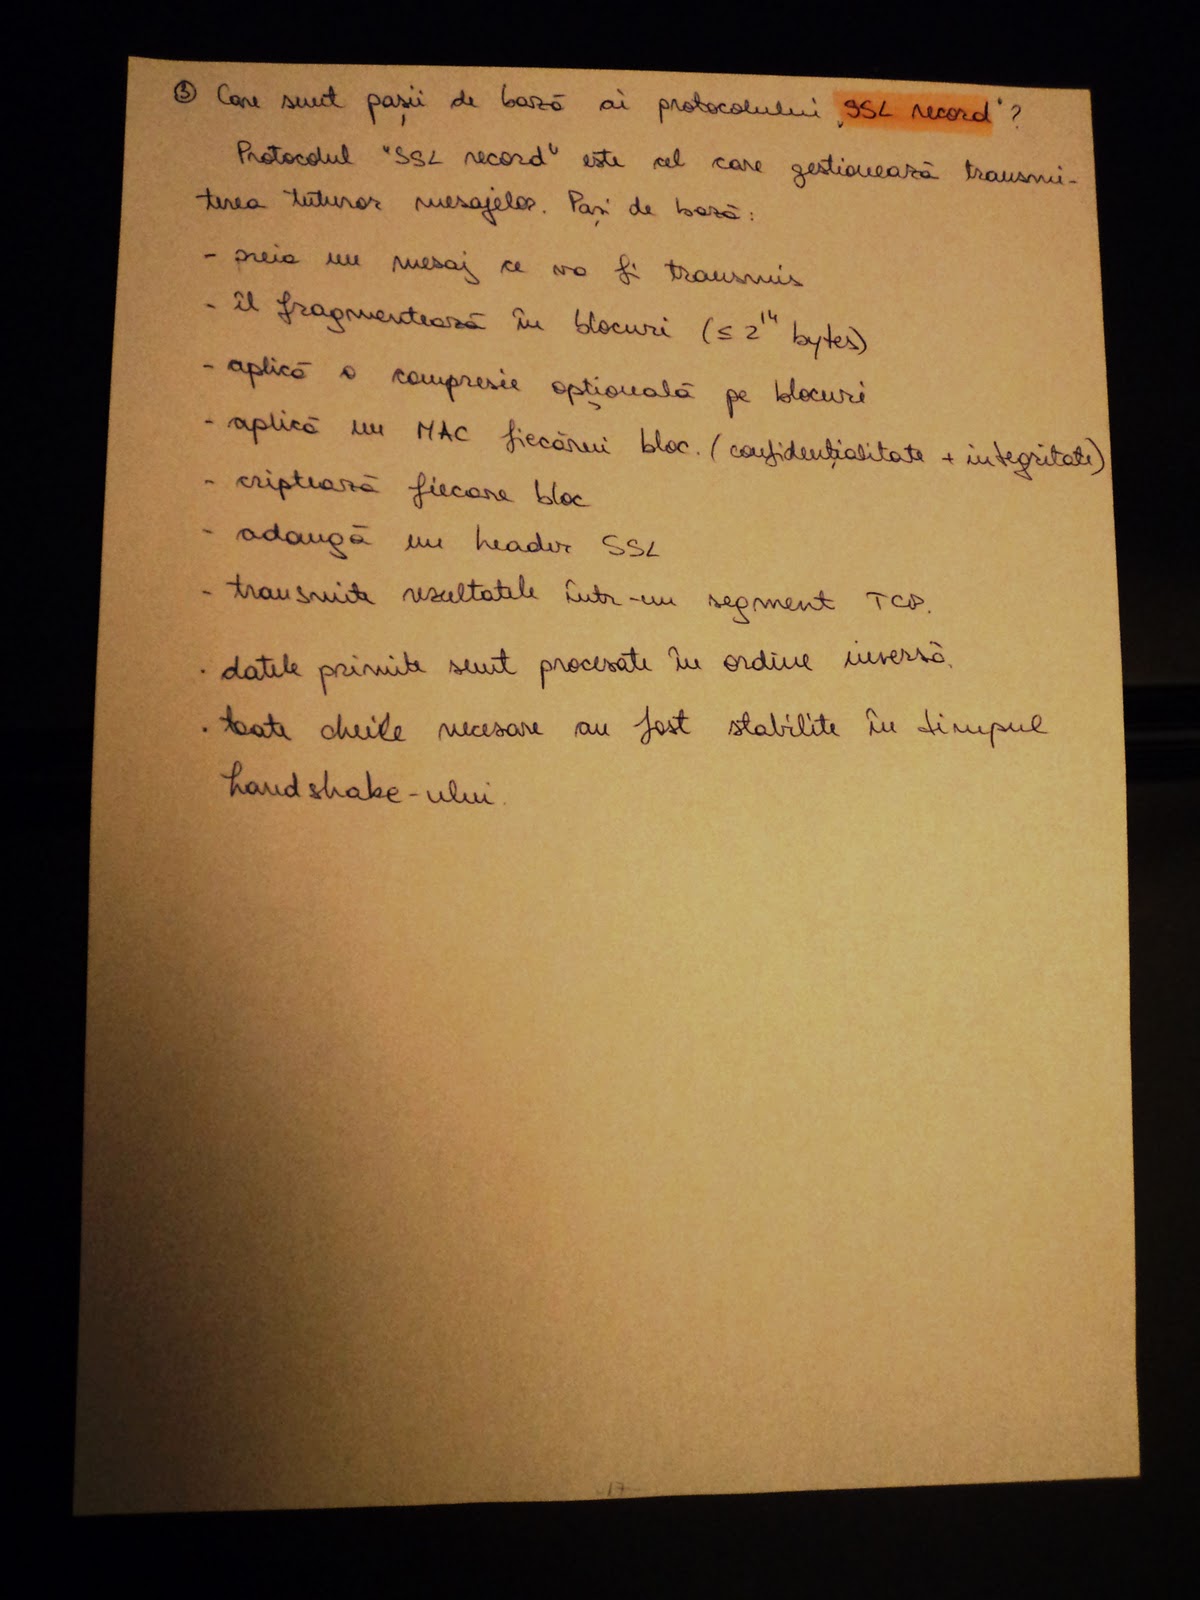 ③ Care sunt pașii de bază ai protocolului „SSL record"?
Protocolul "SSL record" este cel care gestionează transmi-
terea tuturor mesajelor. Pași de bază:
- preia un mesaj ce va fi transmis
- îl fragmentează în blocuri (≤ 2^14 bytes)
- aplică o compresie opțională pe blocuri
- aplică un MAC fiecărui bloc. (confidențialitate + integritate)
- criptează fiecare bloc
- adaugă un header SSL
- transmite rezultatele într-un segment TCP.
· datele primite sunt procesate în ordine inversă.
· toate cheile necesare au fost stabilite în timpul
handshake-ului.
-17-